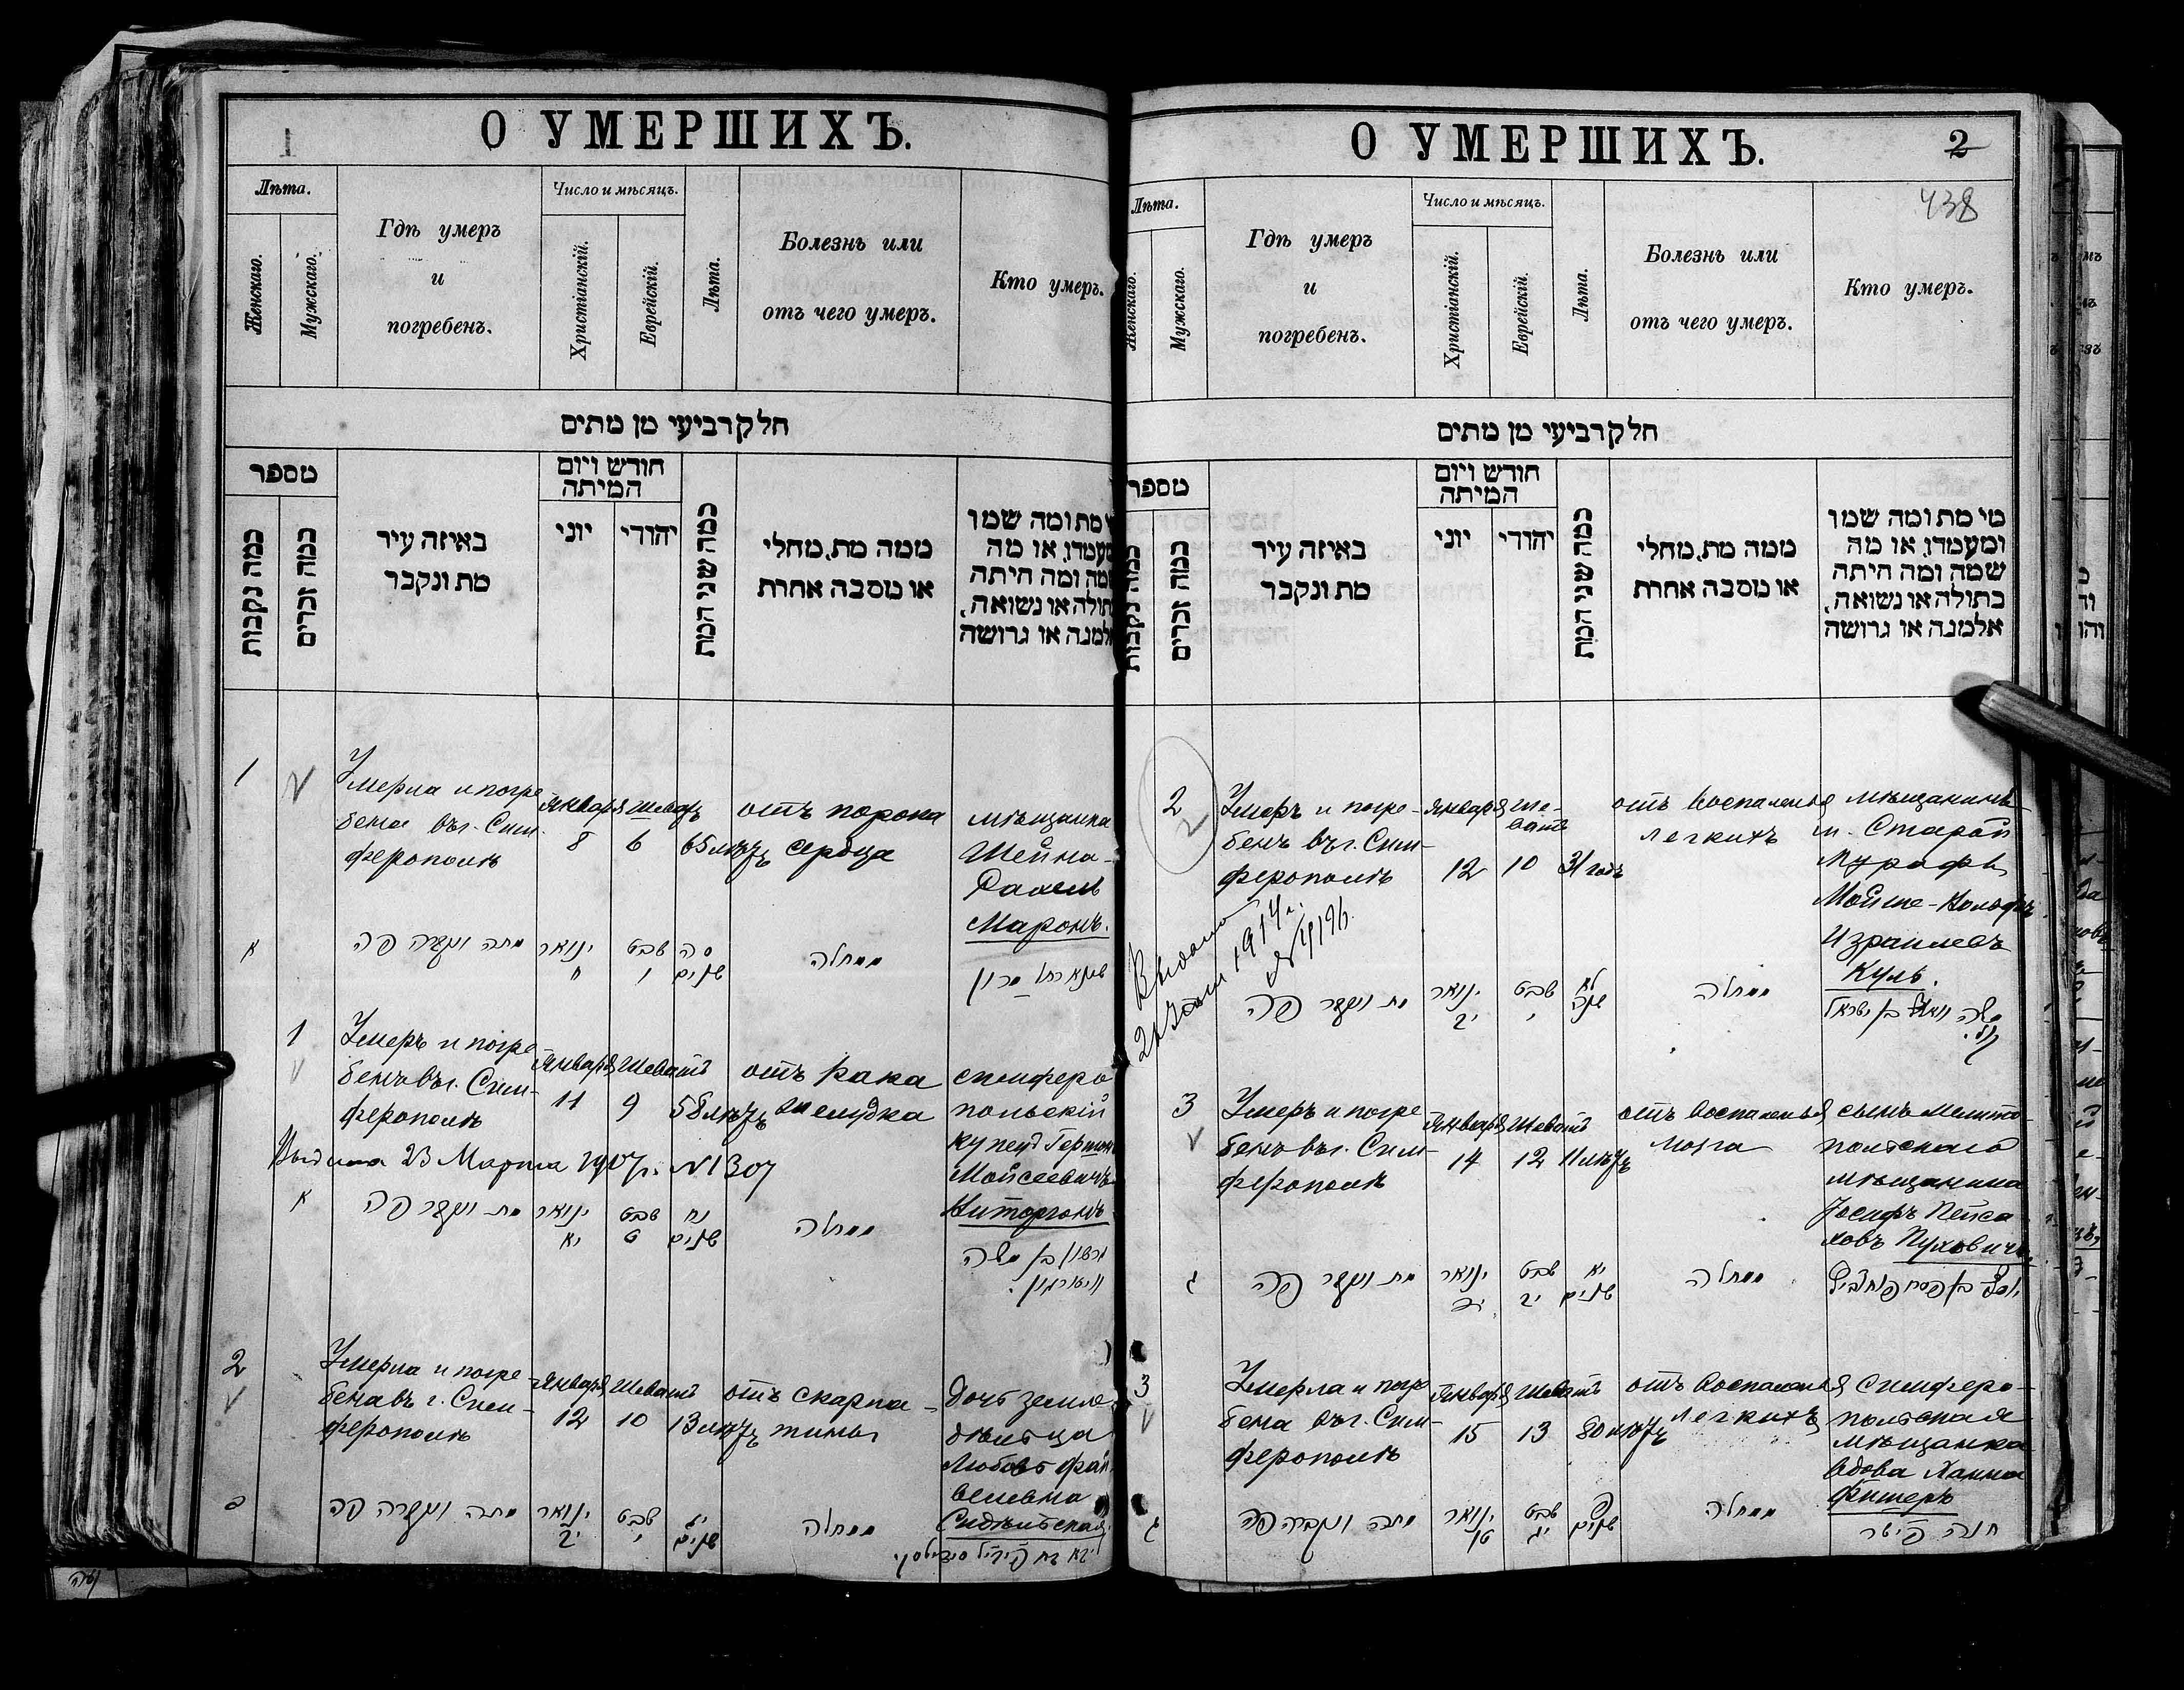 1
О УМЕРШИХЪ.
Лѣта.
Женскаго.
Мужскаго.
Гдѣ умеръ
и
погребенъ.
Число и мѣсяцъ.
Христіанскій.
Еврейскій.
Лѣта.
Болезнь или
отъ чего умеръ.
Кто умеръ.
חלק רביעי מן מתים
מספר
כמה נקבות
כמה זכרים
באיזה עיר
מת ונקבר
חודש ויום
המיתה
יוני
יהודי
כמה שני המת
ממה מת, מחלי
או מסבה אחרת
מת ומה שמו
ומעמדו, או מה
שמה ומה היתה
בתולה או נשואה,
אלמנה או גרושה
1
Умерла и погре
бена въ г. Сим-
ферополѣ
Января
8
Шеватъ
6
65 лѣтъ
отъ порока
сердца
мѣщанка
Шейна-
Рахель
Маронъ.
א
מתה ונקברה פה
ינואר
ח
שבט
ו
סה
שנים
ממחלה
שיינא רחל מרון
1
Умеръ и погре
бенъ въ г. Сим-
ферополѣ
Января
11
Шеватъ
9
58 лѣтъ
отъ рака
желудка
симферо
польскій
купецъ Гершон
Мойсеевичъ
Виторгонъ
Выдана 23 Марта 1907 г. № 1307
א
מת ונקבר פה
ינואר
יא
שבט
ט
נח
שנים
ממחלה
גרשון בן משה
וויטורגון.
2
Умерла и погре-
бена въ г. Сим-
ферополѣ
Января
12
Шеватъ
10
13 лѣтъ
отъ скарла-
тины
дочь земле-
дѣльца
Любовь Фай
велевна
ב
מתה ונקברה פה
ינואר
יב
שבט
י
יג
שנים
ממחלה
О УМЕРШИХЪ.
2
438
Лѣта.
Женскаго.
Мужскаго.
Гдѣ умеръ
и
погребенъ.
Число и мѣсяцъ.
Христіанскій.
Еврейскій.
Лѣта.
Болезнь или
отъ чего умеръ.
Кто умеръ.
חלק רביעי מן מתים
מספר
כמה נקבות
כמה זכרים
באיזה עיר
מת ונקבר
חודש ויום
המיתה
יוני
יהודי
כמה שני המת
ממה מת, מחלי
או מסבה אחרת
מי מת ומה שמו
ומעמדו, או מה
שמה ומה היתה
בתולה או נשואה,
אלמנה או גרושה
2
Умеръ и погре-
бенъ въ г. Сим-
ферополѣ
Января
12
Ше-
ватъ
10
31 годъ
отъ воспаленья
легкихъ
мѣщанинъ
м. Старой
Мурафы
Мойше-Вольфъ
Израилевъ
Куль.
Выдана
1914 г.
מת ונקבר פה
ינואר
יב
שבט
י
לא
שנה
ממחלה
משה וואלף בן ישראל
קול.
3
Умеръ и погре
бенъ въ г. Сим-
ферополѣ
Января
14
Шеватъ
12
11 лѣтъ
отъ воспаленья
мозга
сынъ мелито
польскаго
мѣщанина
Іосифъ Пейса
ховъ Пуховичъ
ג
מת ונקבר פה
ינואר
יד
שבט
יב
יא
שנים
ממחלה
יוסף בן פסח פוחוביץ
3
Умерла и погр
бена въ г. Сим-
ферополѣ
Января
15
Шеватъ
13
80 лѣтъ
отъ воспаленья
легкихъ
симферо-
польская
мѣщанка
вдова Ханна
Фишеръ
ג
מתה ונקברה פה
ינואר
טו
שבט
יג
פ
שנים
ממחלה
חנה פישר